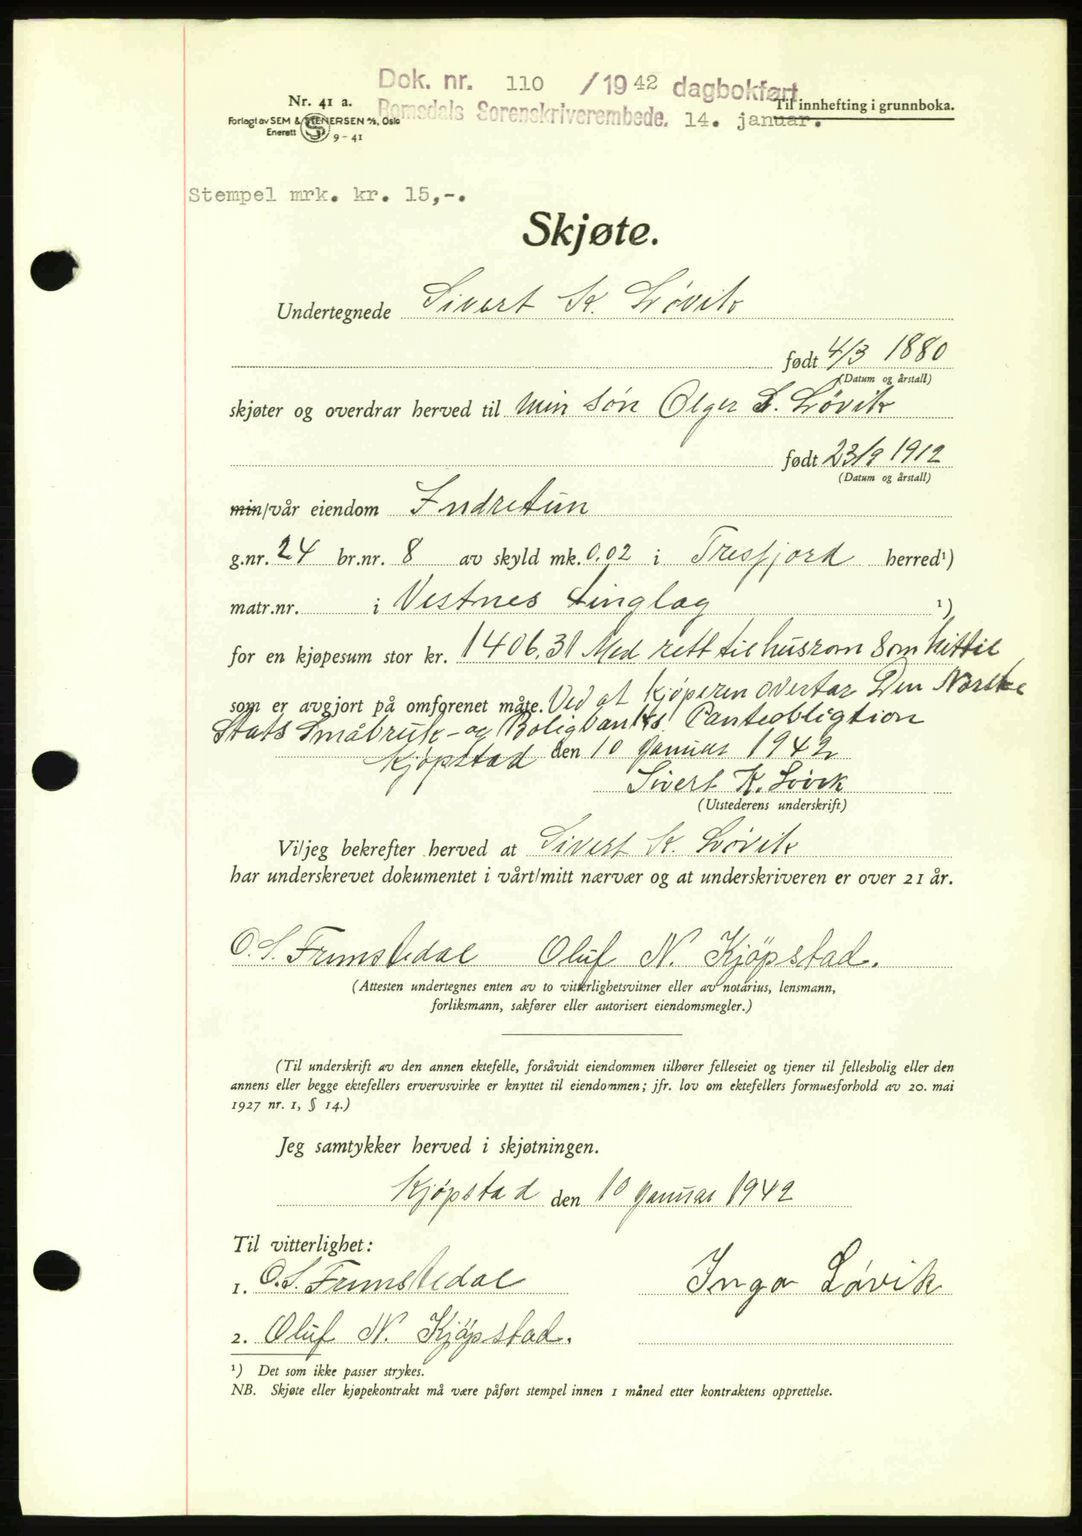 Dok. nr. 110 /1942 dagbokført
Nr. 41 a.
Til innhefting i grunnboka.
Romsdals Sorenskriverembede. 14. januar.
Forlagt av SEM & STENERSEN A/S, Oslo
Enerett
9 - 41
Stempel mrk. kr. 15,-.
Skjøte.
Undertegnede Sivert K. Løvik
født 4/3 1880
(Datum og årstall)
skjøter og overdrar herved til min søn Olger S. Løvik
født 23/9 1912
(Datum og årstall)
min/vår eiendom Indretun
g.nr. 24 br.nr. 8 av skyld mk. 0.02 i Tresfjord herred¹)
matr.nr. i Vestnes tinglag ¹)
for en kjøpesum stor kr. 1406,31 Med rett til husrom som hittil
som er avgjort på omforenet måte. Ved at kjøperen overtar Den Norske
Stats Småbruk- og Boligbanks Panteobligtion
Kjøpstad den 10 januar 1942
Sivert K. Løvik
(Utstederens underskrift)
Vi/jeg bekrefter herved at Sivert K. Løvik
har underskrevet dokumentet i vårt/mitt nærvær og at underskriveren er over 21 år.
O. S. Frimstedal Oluf N. Kjöpstad.
(Attesten undertegnes enten av to vitterlighetsvitner eller av notarius, lensmann,
forliksmann, sakfører eller autorisert eiendomsmegler.)
(Til underskrift av den annen ektefelle, forsåvidt eiendommen tilhører felleseiet og tjener til fellesbolig eller den
annens eller begge ektefellers ervervsvirke er knyttet til eiendommen; jfr. lov om ektefellers formuesforhold av 20. mai
1927 nr. 1, § 14.)
Jeg samtykker herved i skjøtningen.
Kjøpstad den 10 januar 1942
Til vitterlighet:
1. O. S. Frimstedal Inga Løvik
2. Oluf N. Kjöpstad.
¹) Det som ikke passer strykes.
NB. Skjøte eller kjøpekontrakt må være påført stempel innen 1 måned etter kontraktens opprettelse.